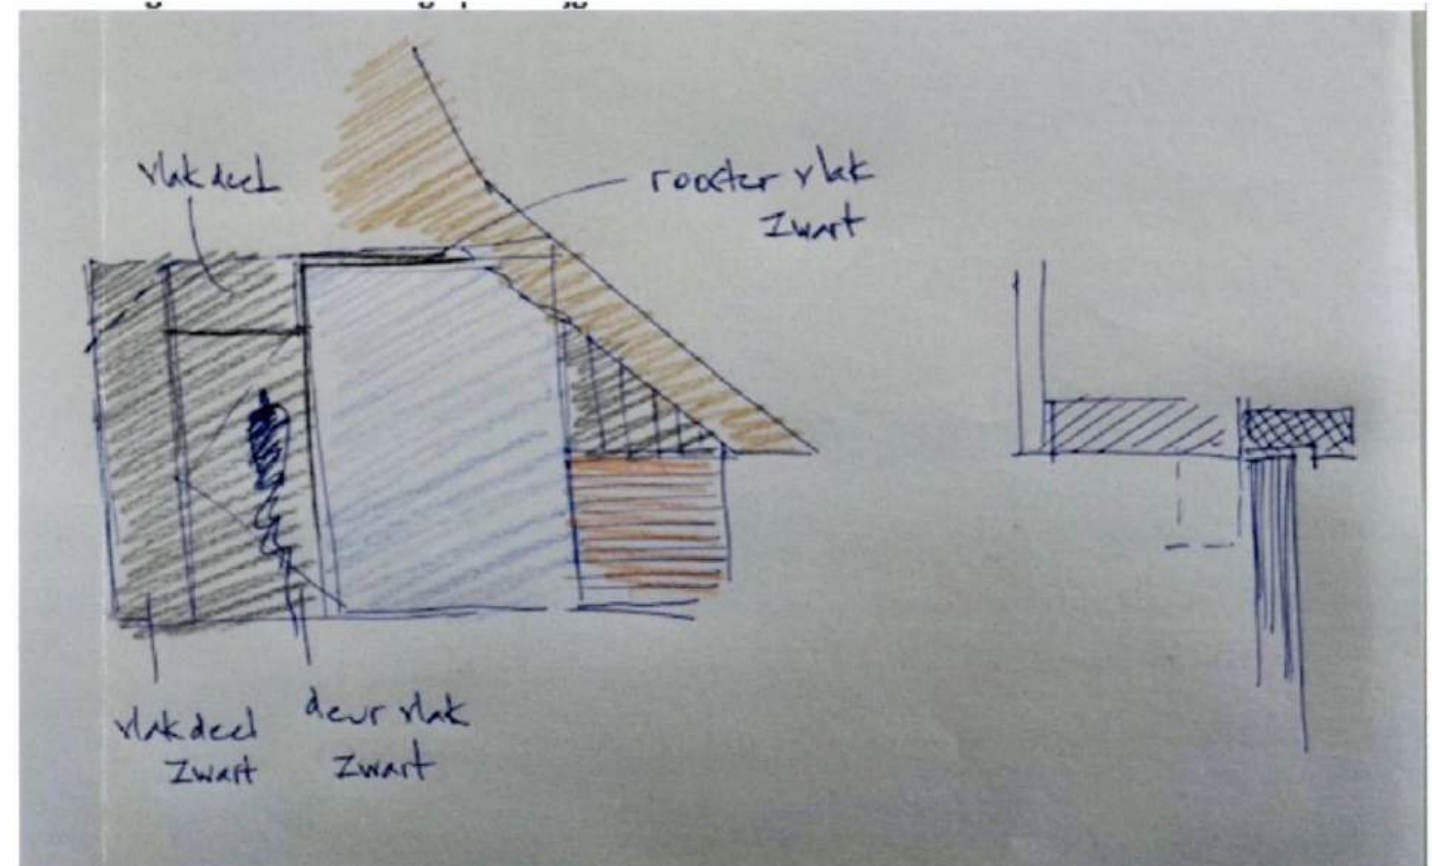 vlak deel
rooster vlak
zwart
vlak deel
zwart
deur vlak
zwart